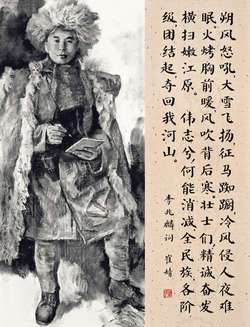 朔风怒吼，大雪飞扬，征马踟蹰，冷风侵人夜难
眠。火烤胸前暖，风吹背后寒。壮士们，精诚奋发
横扫嫩江原。伟志兮，何能消灭，全民族，各阶
级，团结起，夺回我河山。
李兆麟词 崔靖